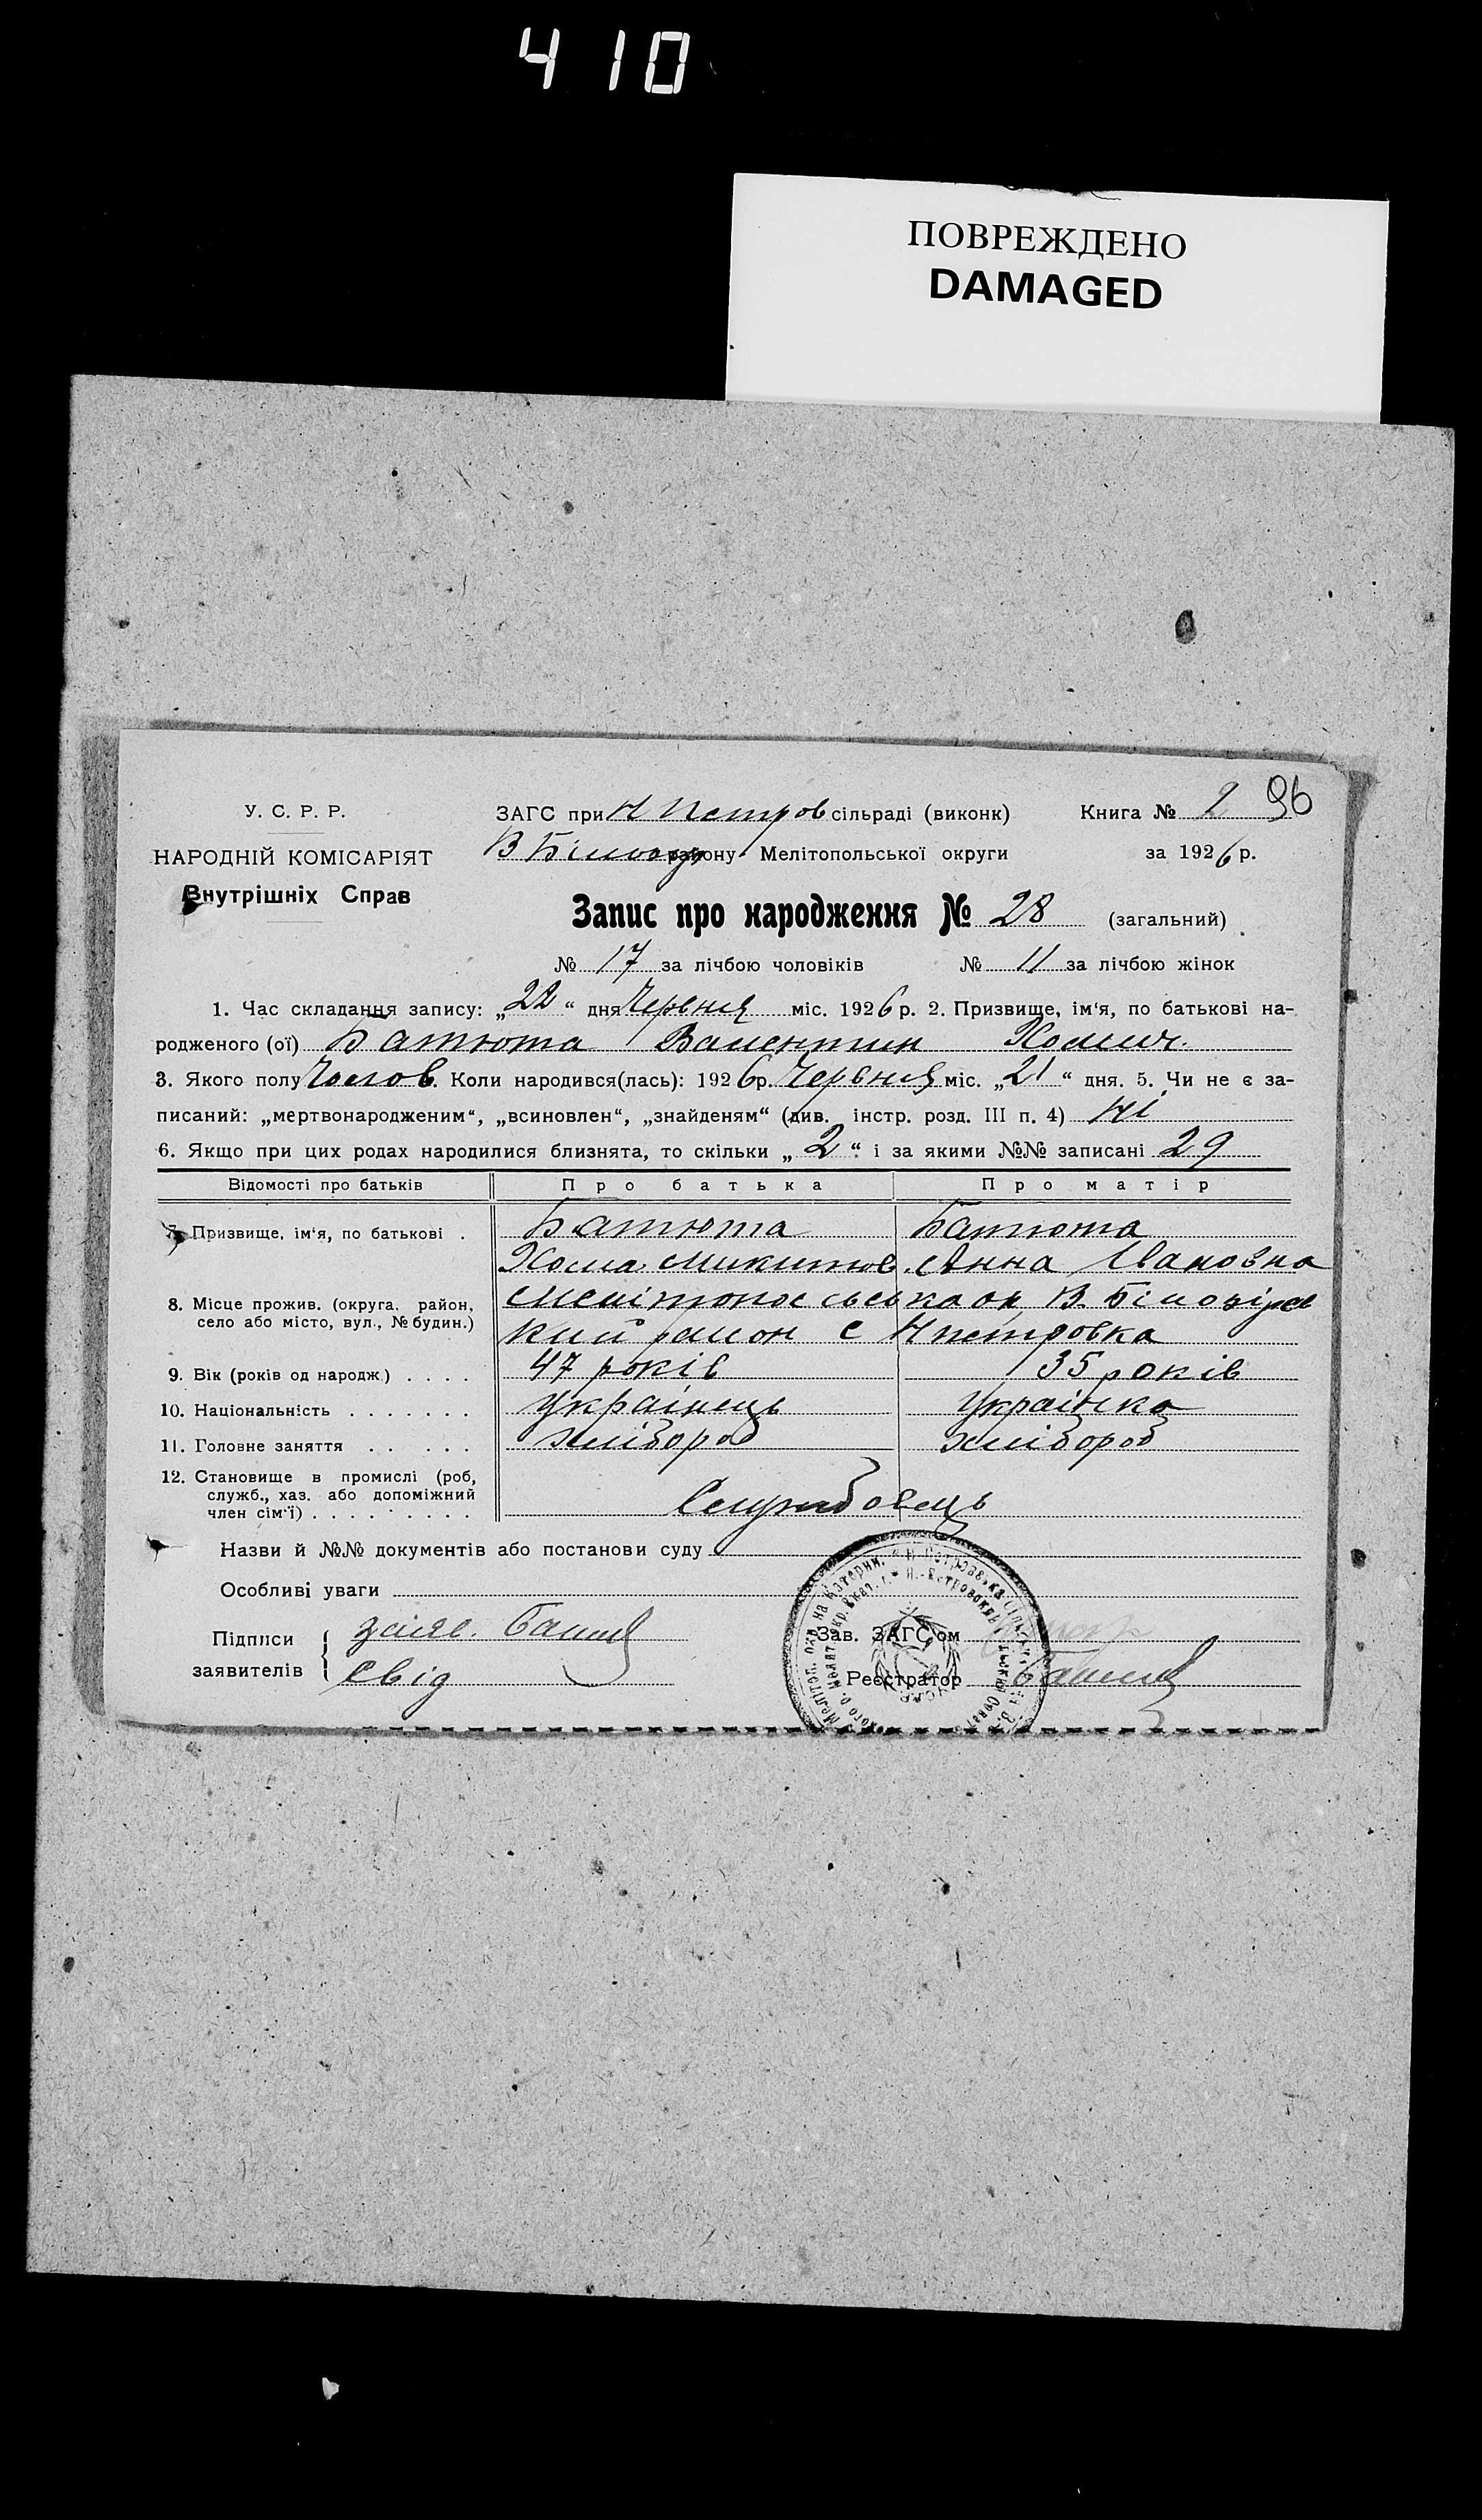 410
ПОВРЕЖДЕНО
DAMAGED
У. С. Р. Р.
НАРОДНІЙ КОМІСАРІЯТ
Внутрішніх Справ
ЗАГС при Н Петров сільраді (виконк)
В Білоз району Мелітопольської округи
Книга № 2 96
за 1926 р.
Запис про народження № 28 (загальний)
№ 17 за лічбою чоловіків № 11 за лічбою жінок
1. Час складання запису: „22“ дня Червня міс. 1926 р. 2. Призвище, ім‘я, по батькові на-
родженого (ої) Батюта Валентин Хомич.
3. Якого полу Чолов. Коли народився(лась): 1926 р. Червня міс. „21“ дня. 5. Чи не є за-
писаний: „мертвонародженим“, „всиновлен“, „знайденям“ (див. інстр. розд. III п. 4) Ні
6. Якщо при цих родах народилися близнята, то скільки „2“ і за якими №№ записані 29
Відомості про батьків Про батька Про матір
7. Призвище, ім‘я, по батькові . Батюта Батюта
Хома Микитов. Анна Івановна
8. Місце прожив. (округа, район, село або місто, вул., № будин.) Мелітопольська ок В. Білозірсь
кий район с Н Петровка
9. Вік (років од народж.) . . . . 47 років 35 років
10. Національність . . . . . . . українець українка
11. Головне заняття . . . . . хлібороб хлібороб
12. Становище в промислі (роб,
служб., хаз. або допоміжний
член сім‘ї) . . . . . . . . .
Назви й №№ документів або постанови суду
Особливі уваги
Підписи
заявителів
заяв.
Свід
Зав. ЗАГС‘ом
Реєстратор